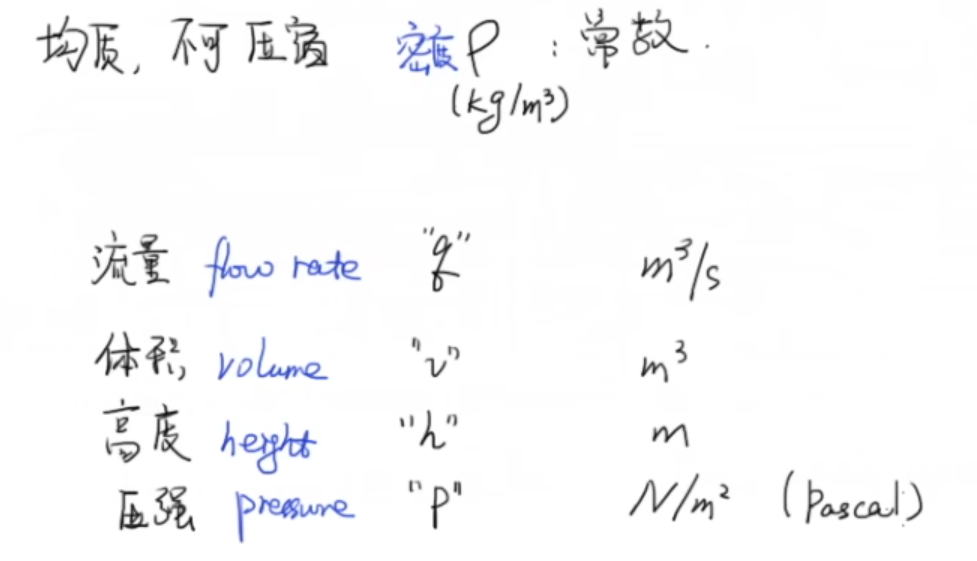 均质, 不可压缩 密度ρ : 常数.
(kg/m³)
流量 flow rate "q" m³/s
体积, volume "v" m³
高度 height "h" m
压强 pressure "P" N/m² (Pascal)